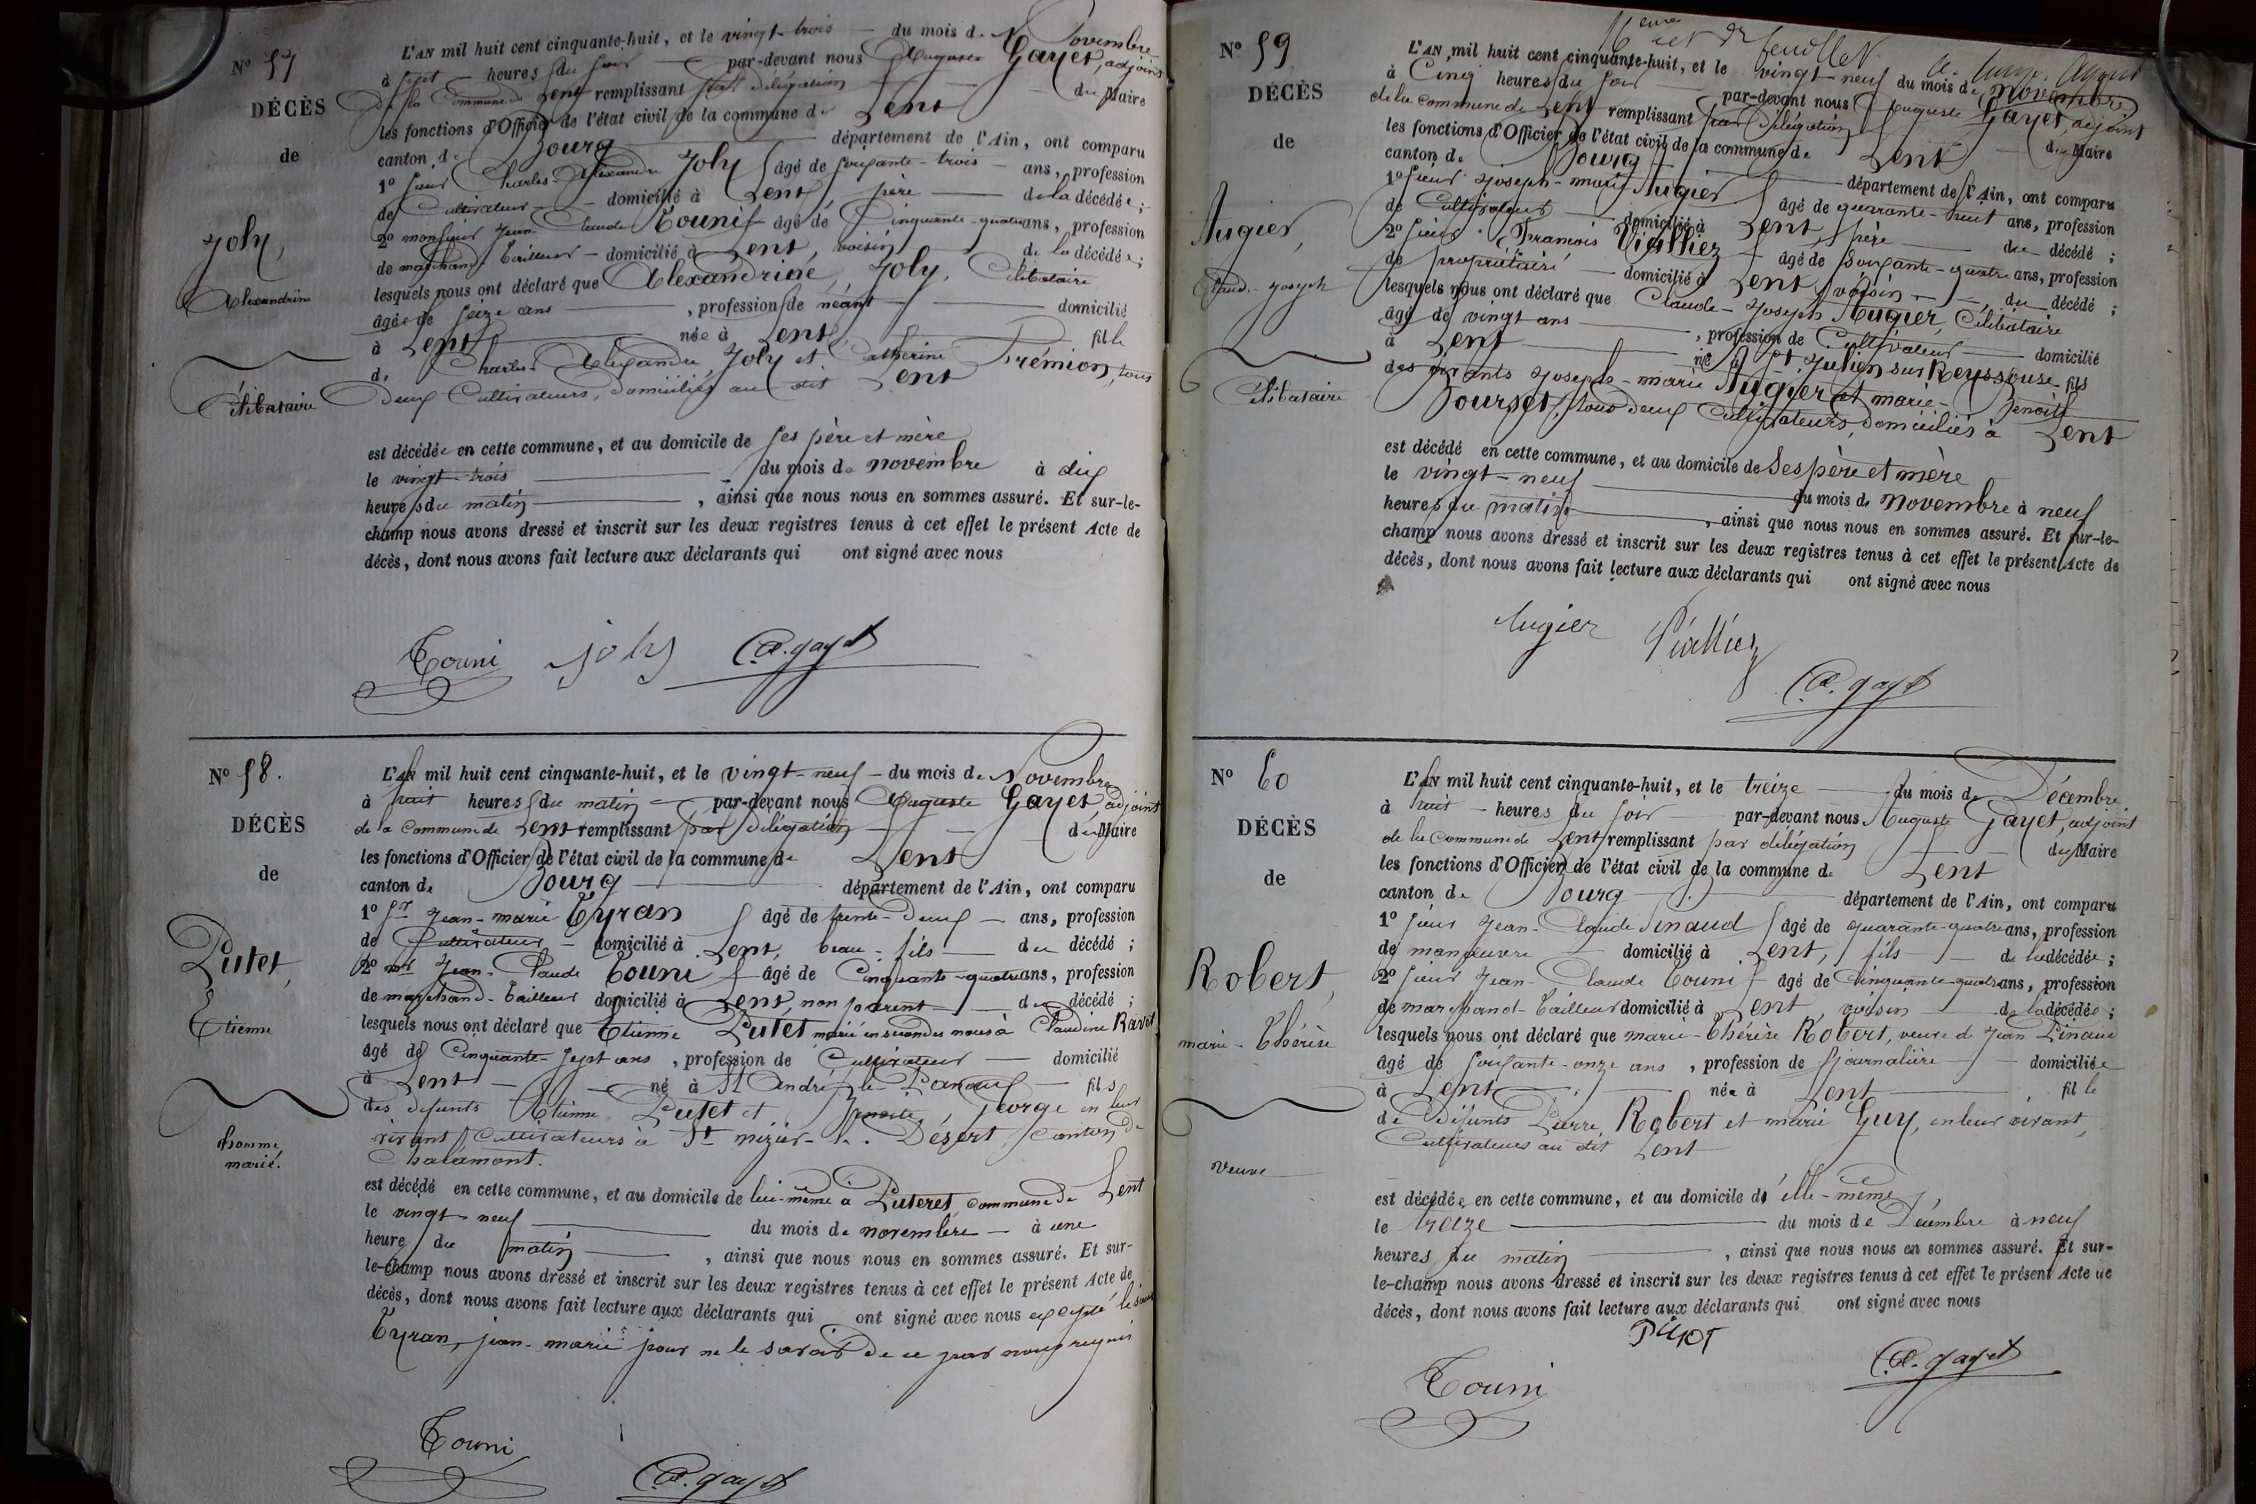 N° 57
DÉCÈS
de
Joly,
Alexandrine
Célibataire
L'AN mil huit cent cinquante-huit, et le vingt-trois du mois de Novembre
à sept heures du soir par-devant nous Auguste Gayet, adjoint
de la commune de Lent remplissant par délégation du Maire
les fonctions d'Officier de l'état civil de la commune de Lent
canton de Bourg département de l'Ain, ont comparu
1° sieur Charles-Alexandre Joly âgé de soixante-trois ans, profession
de Cultivateur domicilié à Lent, père de la décédée;
2° monsieur Jean-Claude Touni âgé de Cinquante-quatre ans, profession
de marchand-Tailleur domicilié à Lent, voisin de la décédée;
lesquels nous ont déclaré que Alexandrine Joly, Célibataire
âgée de seize ans, profession de néant domicilié
à Lent née à Lent fille
de Charles Alexandre Joly et Catherine Frémion, tous
deux Cultivateurs, domiciliés au dit Lent
est décédée en cette commune, et au domicile de ses père et mère
le vingt-trois du mois de novembre à dix
heures du matin, ainsi que nous nous en sommes assuré. Et sur-le-
champ nous avons dressé et inscrit sur les deux registres tenus à cet effet le présent Acte de
décès, dont nous avons fait lecture aux déclarants qui ont signé avec nous
Touni joly A. gayet
N° 58.
DÉCÈS
de
Putet,
Etienne
homme
marié.
L'AN mil huit cent cinquante-huit, et le vingt-neuf du mois de Novembre
à huit heures du matin par-devant nous Auguste Gayet, adjoint
de la commune de Lent remplissant par délégation du Maire
les fonctions d'Officier de l'état civil de la commune de Lent
canton de Bourg département de l'Ain, ont comparu
1° Sr Jean-marie Tyran âgé de trente-deux ans, profession
de Cultivateur domicilié à Lent, beau-fils du décédé;
2° mr Jean-Claude Touni âgé de Cinquante-quatre ans, profession
de marchand-Tailleur domicilié à Lent, non parent du décédé;
lesquels nous ont déclaré que Etienne Putet marié en secondes noces à Claudine Ravet
âgé de Cinquante-sept ans, profession de Cultivateur domicilié
à Lent né à St André-le-Panoux fils
des défunts Etienne Putet et Benoite George en leur
vivant Cultivateurs à St Nizier-le-Désert, canton de
Chalamont.
est décédé en cette commune, et au domicile de lui-même à Luteret, commune de Lent
le vingt-neuf du mois de novembre à une
heure du matin, ainsi que nous nous en sommes assuré. Et sur-
le-champ nous avons dressé et inscrit sur les deux registres tenus à cet effet le présent Acte de
décès, dont nous avons fait lecture aux déclarants qui ont signé avec nous excepté le sieur
Tyran, jean-marie pour ne le savoir de ce par nous requis
Touni A. gayet
4eme et dr feuillet A. Gayet
N° 59
DÉCÈS
de
Augier,
Claude-joseph
Célibataire
L'AN mil huit cent cinquante-huit, et le vingt-neuf du mois de novembre
à Cinq heures du soir par-devant nous Auguste Gayet, adjoint
de la commune de Lent remplissant par délégation du Maire
les fonctions d'Officier de l'état civil de la commune de Lent
canton de Bourg département de l'Ain, ont comparu
1° sieur Joseph-marie Augier âgé de quarante-huit ans, profession
de Cultivateur domicilié à Lent, père du décédé;
2° sieur François Vialliez âgé de soixante-quatre ans, profession
de propriétaire domicilié à Lent, voisin du décédé;
lesquels nous ont déclaré que Claude-Joseph Augier, Célibataire
âgé de vingt ans, profession de Cultivateur domicilié
à Lent né à St Julien sur Reyssouse fils
des vivants Joseph-marie Augier et marie-Benoite
Bourset, tous deux Cultivateurs, domiciliés à Lent
est décédé en cette commune, et au domicile de Ses père et mère
le vingt-neuf du mois de novembre à neuf
heures du matin, ainsi que nous nous en sommes assuré. Et sur-le-
champ nous avons dressé et inscrit sur les deux registres tenus à cet effet le présent Acte de
décès, dont nous avons fait lecture aux déclarants qui ont signé avec nous
Augier Vialliez
A. gayet
N° 60
DÉCÈS
de
Robert,
marie-Thérèse
Veuve
L'AN mil huit cent cinquante-huit, et le treize du mois de Décembre
à huit heures du soir par-devant nous Auguste Gayet, adjoint
de la commune de Lent remplissant par délégation du Maire
les fonctions d'Officier de l'état civil de la commune de Lent
canton de Bourg département de l'Ain, ont comparu
1° sieur Jean-Claude Pinaud âgé de quarante-quatre ans, profession
de manœuvre domicilié à Lent, fils de la décédée;
2° sieur Jean-Claude Touni âgé de Cinquante-quatre ans, profession
de marchand-Tailleur domicilié à Lent, voisin de la décédée;
lesquels nous ont déclaré que marie-Thérèse Robert, veuve d Jean Pinaud
âgé de soixante-onze ans, profession de Journalière domiciliée
à Lent née à Lent fille
de Défunts Pierre Robert et marie Guy, en leur vivant,
Cultivateurs au dit Lent
est décédée en cette commune, et au domicile d'elle-même,
le treize du mois de Décembre à neuf
heures du matin, ainsi que nous nous en sommes assuré. Et sur-
le-champ nous avons dressé et inscrit sur les deux registres tenus à cet effet le présent Acte de
décès, dont nous avons fait lecture aux déclarants qui ont signé avec nous
Touni A. gayet